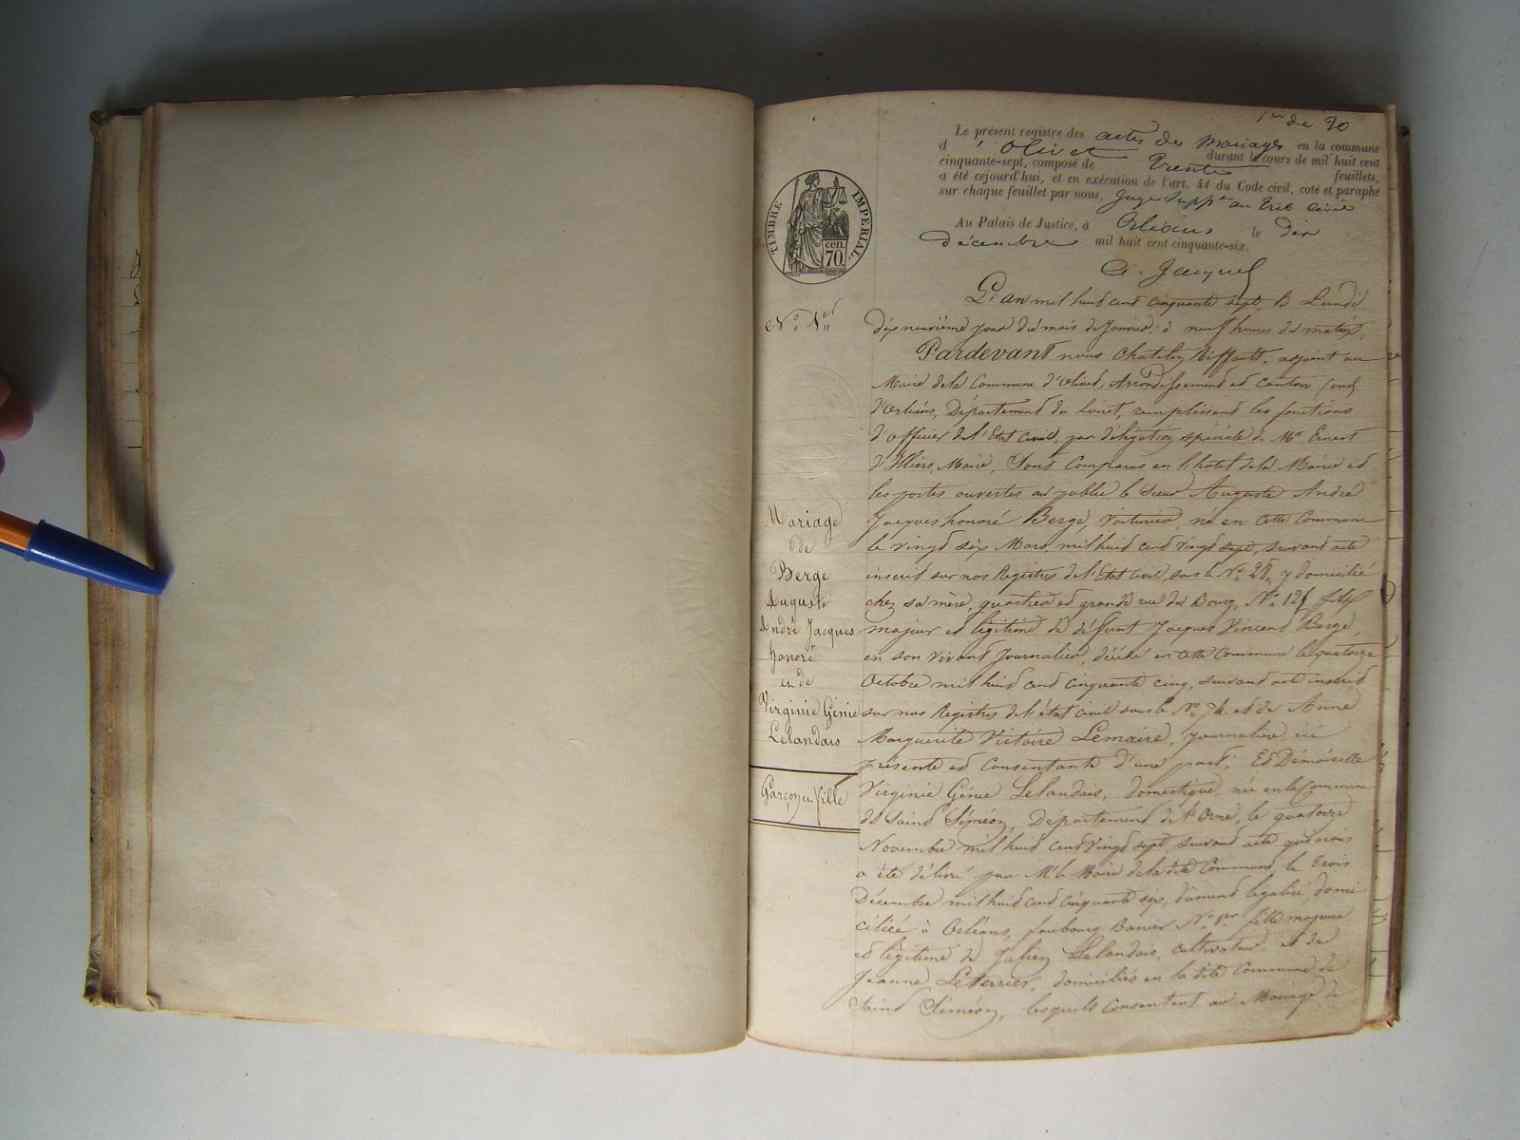 1er de 30
Le présent registre des actes des Mariages en la commune
d'Olivet durant le cours de mil huit cent
cinquante-sept, composé de Trente feuillets,
a été cejourd'hui, et en exécution de l'art. 41 du Code civil, coté et paraphé
sur chaque feuillet par nous, Juge Suppt au Trib Civil
Au Palais de Justice, à Orléans le dix
décembre mil huit cent cinquante-six.
TIMBRE IMPERIAL.
cen. 70.
L'an mil huit cent cinquante sept, le Lundi
dix neuvième jour du mois de Janvier, à neuf heures du matin,
Pardevant nous Riffault, adjoint au
Maire de la Commune d'Olivet, Arrondissement et canton Sud
d'Orléans, Département du Loiret, remplissant les fonctions
d'officier de l'Etat civil, par délégation spéciale de Mr Ernest
d'Illiers, Maire, Sont Comparus en l'hôtel de la Mairie et
les portes ouvertes au public le Sieur Auguste André
Jacques honoré Berge, Voiturier, né en cette Commune
le vingt six Mars, mil huit cent vingt sept, suivant acte
inscrit sur nos Registres de l'Etat civil, sous le No y domicilié
chez sa mère, quartier et grande rue du Bourg, No fils
majeur et légitime de défunt Jacques Vincent Berge,
en son vivant Journalier, décédé en cette Commune le quatorze
Octobre mil huit cent cinquante cinq, suivant acte inscrit
sur nos Registres de l'état civil sous le No 74 et de Anne
Marguerite Victoire Lemaire, Journalière ici
présente et consentante d'une part; Et Demoiselle
Virginie Génie Lelandais, domestique, née en la Commune
de Saint Siméon, Département de l'Orne, le quatorze
Novembre mil huit cent vingt sept, suivant acte qui nous
a été délivré par Mr le Maire de la dite Commune, le trois
Décembre mil huit cent cinquante six, dûment légalisé, domi
ciliée à Orléans, faubourg Banier No 1er fille majeure
et légitime de Julien Lelandais, cultivateur et de
Jeanne Leterrier, domiciliés en la dite Commune de
Saint Siméon, lesquels consentent au Mariage de
No 1er
Mariage
de
Berge
Auguste
André Jacques
honoré
et de
Virginie Génie
Lelandais
Garçon et fille